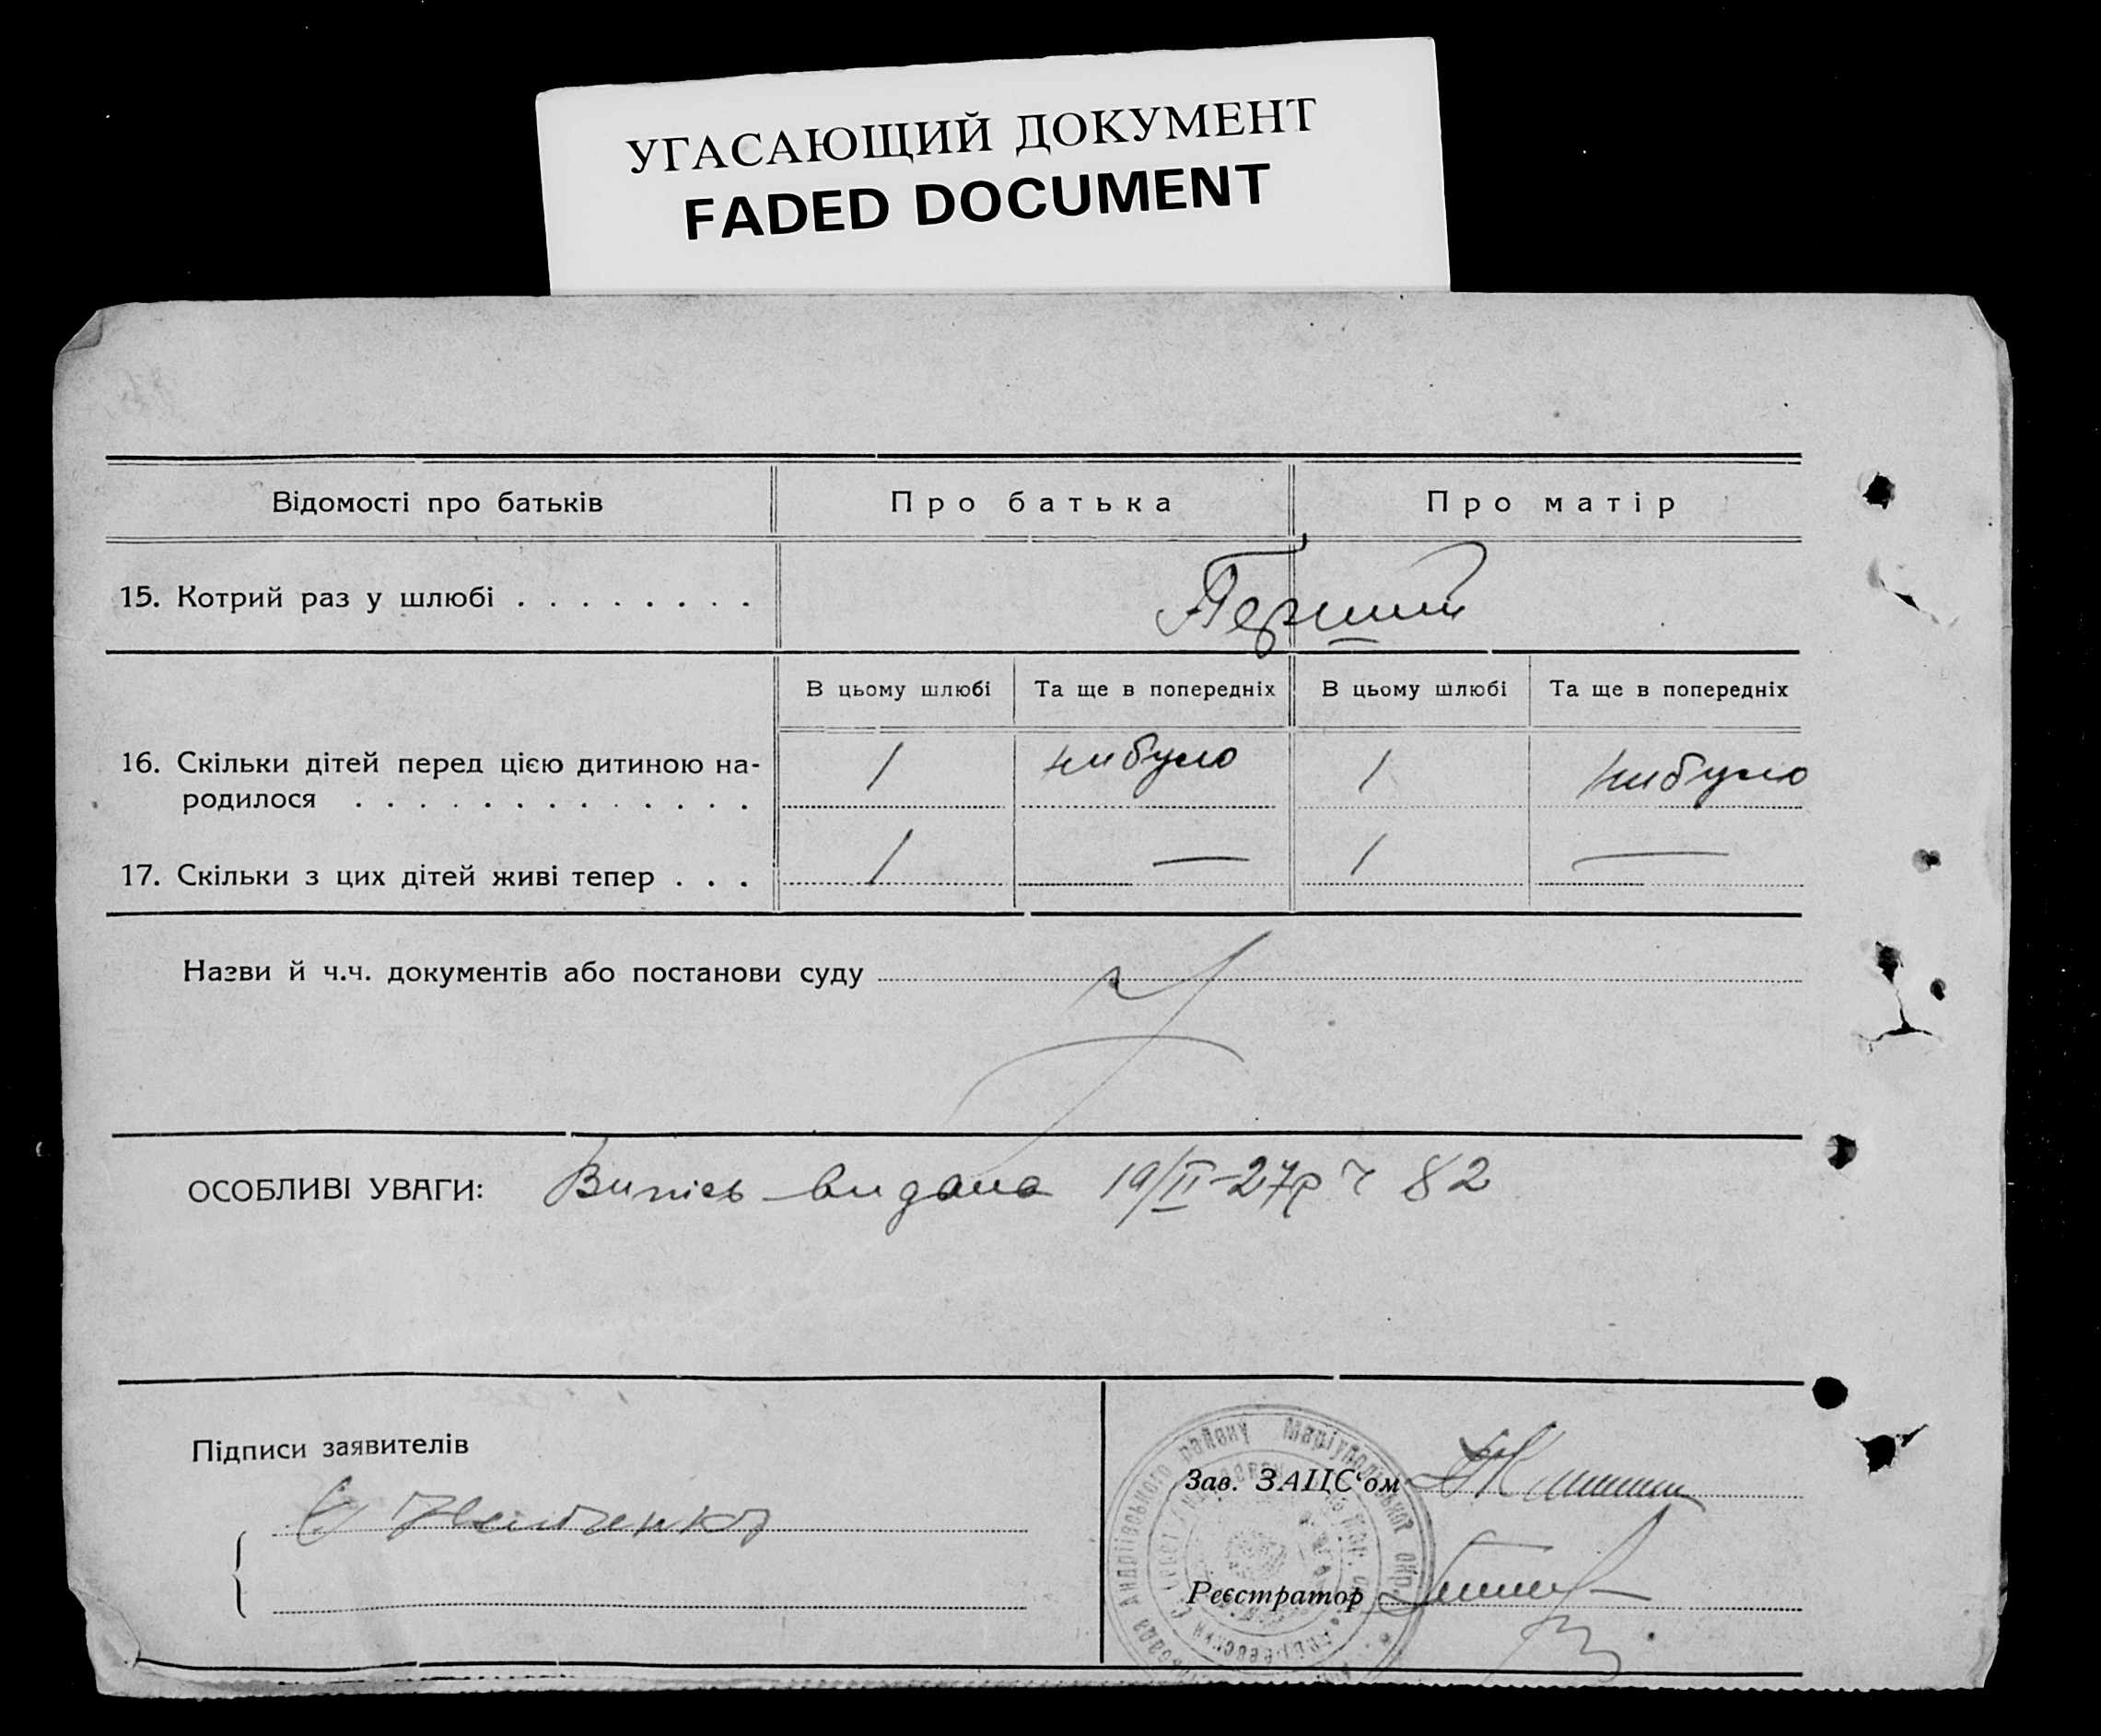 УГАСАЮЩИЙ ДОКУМЕНТ
FADED DOCUMENT
Відомості про батьків
Про батька
Про матір
15. Котрий раз у шлюбі . . . . . . . .
Перший
В цьому шлюбі
Та ще в попередніх
В цьому шлюбі
Та ще в попередніх
16. Скільки дітей перед цією дитиною на-
родилося . . . . . . . . . . . . .
1
нибуло
1
нибуло
17. Скільки з цих дітей живі тепер . . .
1
—
1
—
Назви й ч.ч. документів або постанови суду
ОСОБЛИВІ УВАГИ: Випись видана 19/II-27р ч 82
Підписи заявителів
Зав. ЗАЦС'ом
Реєстратор
Андріївського району Маріупольської окр.